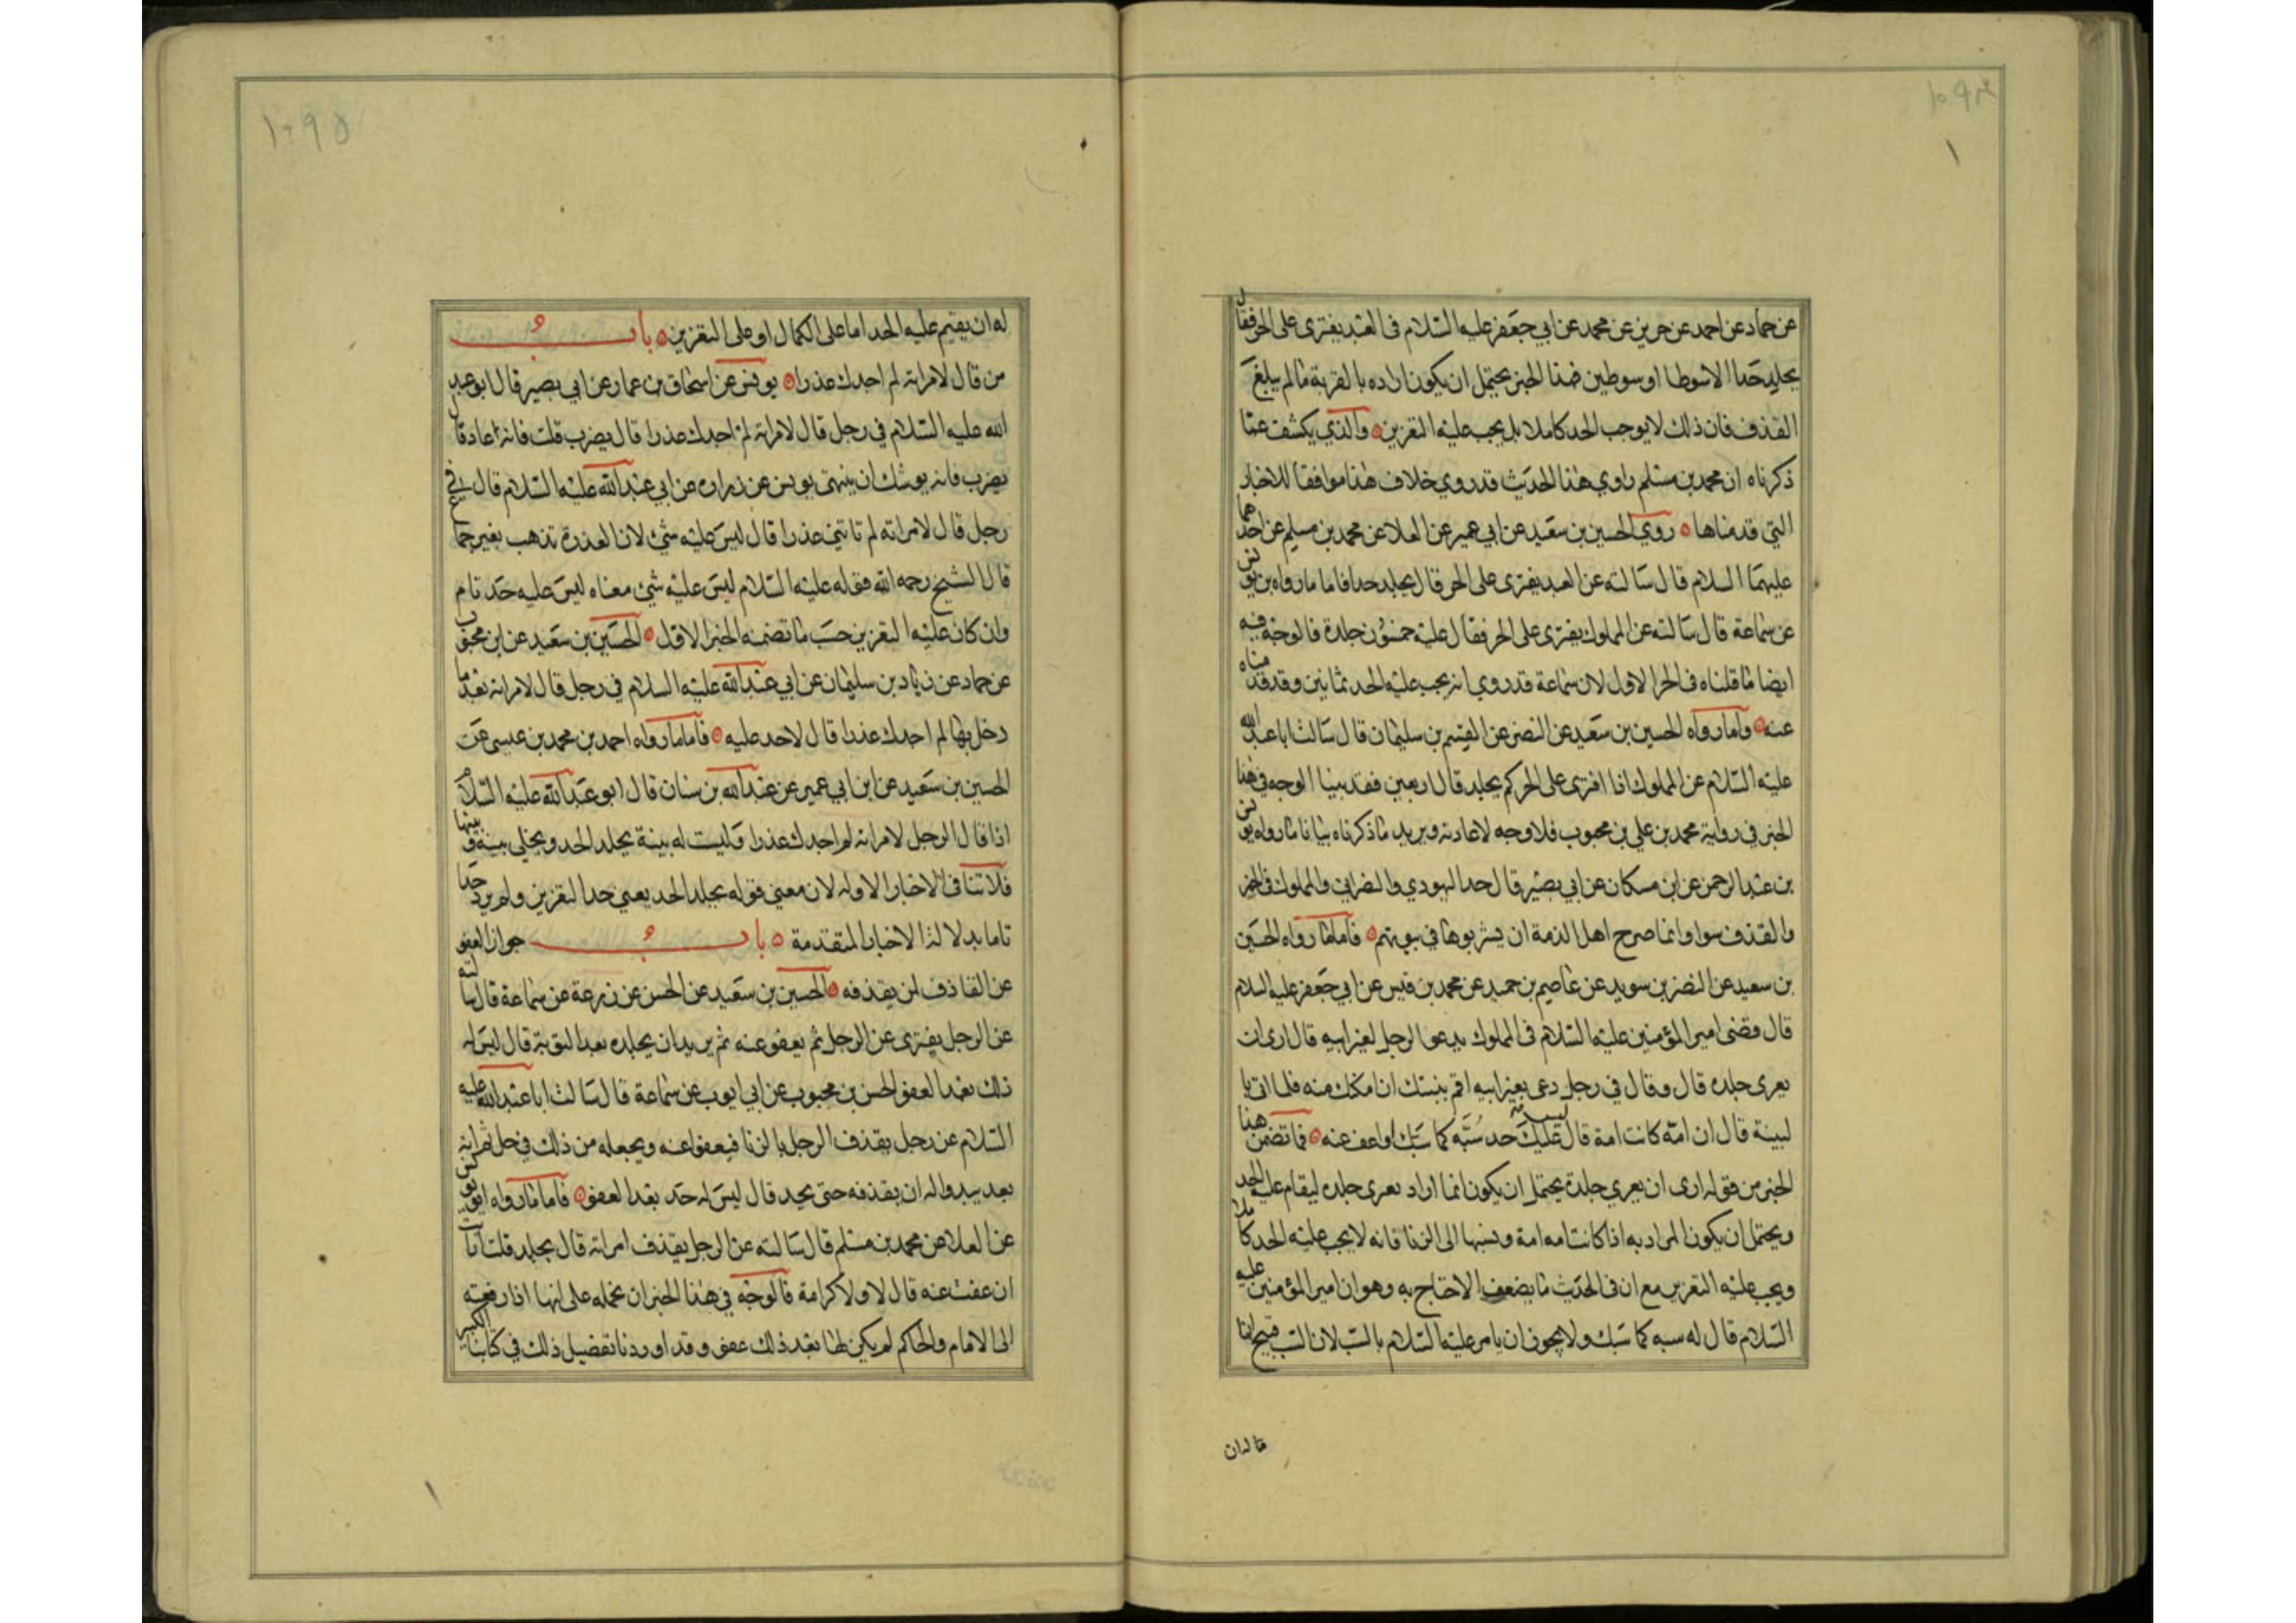 عن حماد عن احمد عن حريز عن محمد عن ابي جعفر عليه السلام فى العبد يفترى على الحر فقال
يجلد حدا الا سوطا او سوطين فهذا الخبر يحتمل ان يكون اراده بالفرية ما لم يبلغ
القذف فان ذلك لا يوجب الحد كاملا بل يجب عليه التعزير والذي يكشف عما
ذكرناه ان محمد بن مسلم راوي هذا الحديث قد روي خلاف هذا موافقا للاخبار
التي قدمناها روي الحسين بن سعيد عن ابي عمير عن العلا عن محمد بن مسلم عن احدهما
عليهما السلام قال سالته عن العبد يفترى على الحر قال يجلد حدا فاما ما رواه بن يونس
عن سماعة قال سالته عن المملوك يفترى على الحر فقال عليه خمسون جلدة فالوجه فيه
ايضا ما قلناه فى الخبر الاول لان سماعة قد روي انه يجب عليه الحد ثمانين وقد قدمناه
عنه واما رواه الحسين بن سعيد عن النضر عن القسم بن سليمان قال سالت ابا عبد الله
عليه السلام عن المملوك اذا افترى على الحر كم يجلد قال اربعين فقد بينا الوجه فى هذا
الخبر في رواية محمد بن علي بن محبوب فلا وجه لاعادته ويزيد ما ذكرناه بيانا ما رواه يونس
بن عبد الرحمن عن ابن مسكان عن ابي بصير قال حد اليهودي والنصراني والمملوك فى الخمر
والقذف سوا وانما صرح اهل الذمة ان يشربوها في بيوتهم فاما ما رواه الحسين
بن سعيد عن النضر بن سويد عن عاصم بن حميد عن محمد بن قيس عن ابي جعفر عليه السلام
قال قضى امير المؤمنين عليه السلام فى المملوك يدعو الرجل لغير ابيه قال ارى ان
يعرى جلده قال وقال في رجل دعى بغير ابيه اقم بينتك ان امكنك منه فلما اتى با
لبينة قال ان امّه كانت امة قال ليس عليك حد سبّه كما سبك او اعف عنه فما تضمن هذا
الخبر من قوله ارى ان يعري جلدة يحتمل ان يكون انما اراد يعرى جلده ليقام عليه الحد
ويحتمل ان يكون المراد به اذا كانت امه امة ونسبها الى الزنا فانه لا يجب عليه الحد كاملا
ويجب عليه التعزير مع ان فى الحديث ما يضعف الاحتاج به وهو ان امير المؤمنين عليه
السلام قال له سبه كما سبك ولا يجوز ان يامر عليه السلام بالسب لان السب قبيح انما
له ان يقيم عليه الحد اما على الكمال او على التعزير باب
من قال لامراته لم اجدك عذرا يونس عن اسحاق بن عمار عن ابي بصير قال ابو عبد
الله عليه السلام في رجل قال لامراته لم اجدك عذرا قال يضرب قلت فانه اعاد قال
يضرب فانه يوشك ان ينتهى يونس عن زراره عن ابي عبد الله عليه السلام قال في
رجل قال لامراته لم تاتني عذرا قال ليس عليه شئ لان العذرة تذهب بغير جماع
قال الشيخ رحمه الله فقوله عليه السلام ليس عليه شئ معناه ليس عليه حد تام
وان كان عليه التعزير حسب ما تضمنه الخبر الاول الحسين بن سعيد عن ابن محبوب
عن حماد عن زياد بن سليمان عن ابي عبد الله عليه السلام في رجل قال لامراته بعد ما
دخل بها لم اجدك عذرا قال لا حد عليه فاما ما رواه احمد بن محمد بن عيسى عن
الحسين بن سعيد عن ابن ابي عمير عن عبد الله بن سنان قال ابو عبد الله عليه السلام
اذا قال الرجل لامراته لم اجدك عذرا وليست له بينة يجلد الحد ويخلى بينه وبينها
فلا تنافى الاخبار الاوله لان معنى قوله يجلد الحد يعني حد التعزير ولم يرد حدا
تاما بدلالة الاخبار المتقدمة باب جواز العفو
عن القاذف لمن يقذفه الحسين بن سعيد عن الحسن عن زرعة عن سماعة قال سالته
عن الرجل يفترى عن الرجل ثم يعفو عنه ثم يريد ان يجلده بعد التوبة قال ليس له
ذلك بعد العفو الحسن بن محبوب عن ابي ايوب عن سماعة قال سالت ابا عبد الله عليه
السلام عن رجل يقذف الرجل بالزنا فيعفوا عنه ويجعله من ذلك في حل ثم انه
بعد يبدوا له ان يقذفه حتى يحد قال ليس له حد بعد العفو فاما ما رواه يونس
عن العلا عن محمد بن مسلم قال سالته عن الرجل يقذف امراته قال يجلد قلت ارايت
ان عفت عنه قال لا ولا كرامة فالوجه في هذا الخبر ان نحمله على انها اذا رفعته
الى الامام والحاكم لم يكن لها بعد ذلك عفو وقد اوردنا تفصيل ذلك في كتابنا الكبير